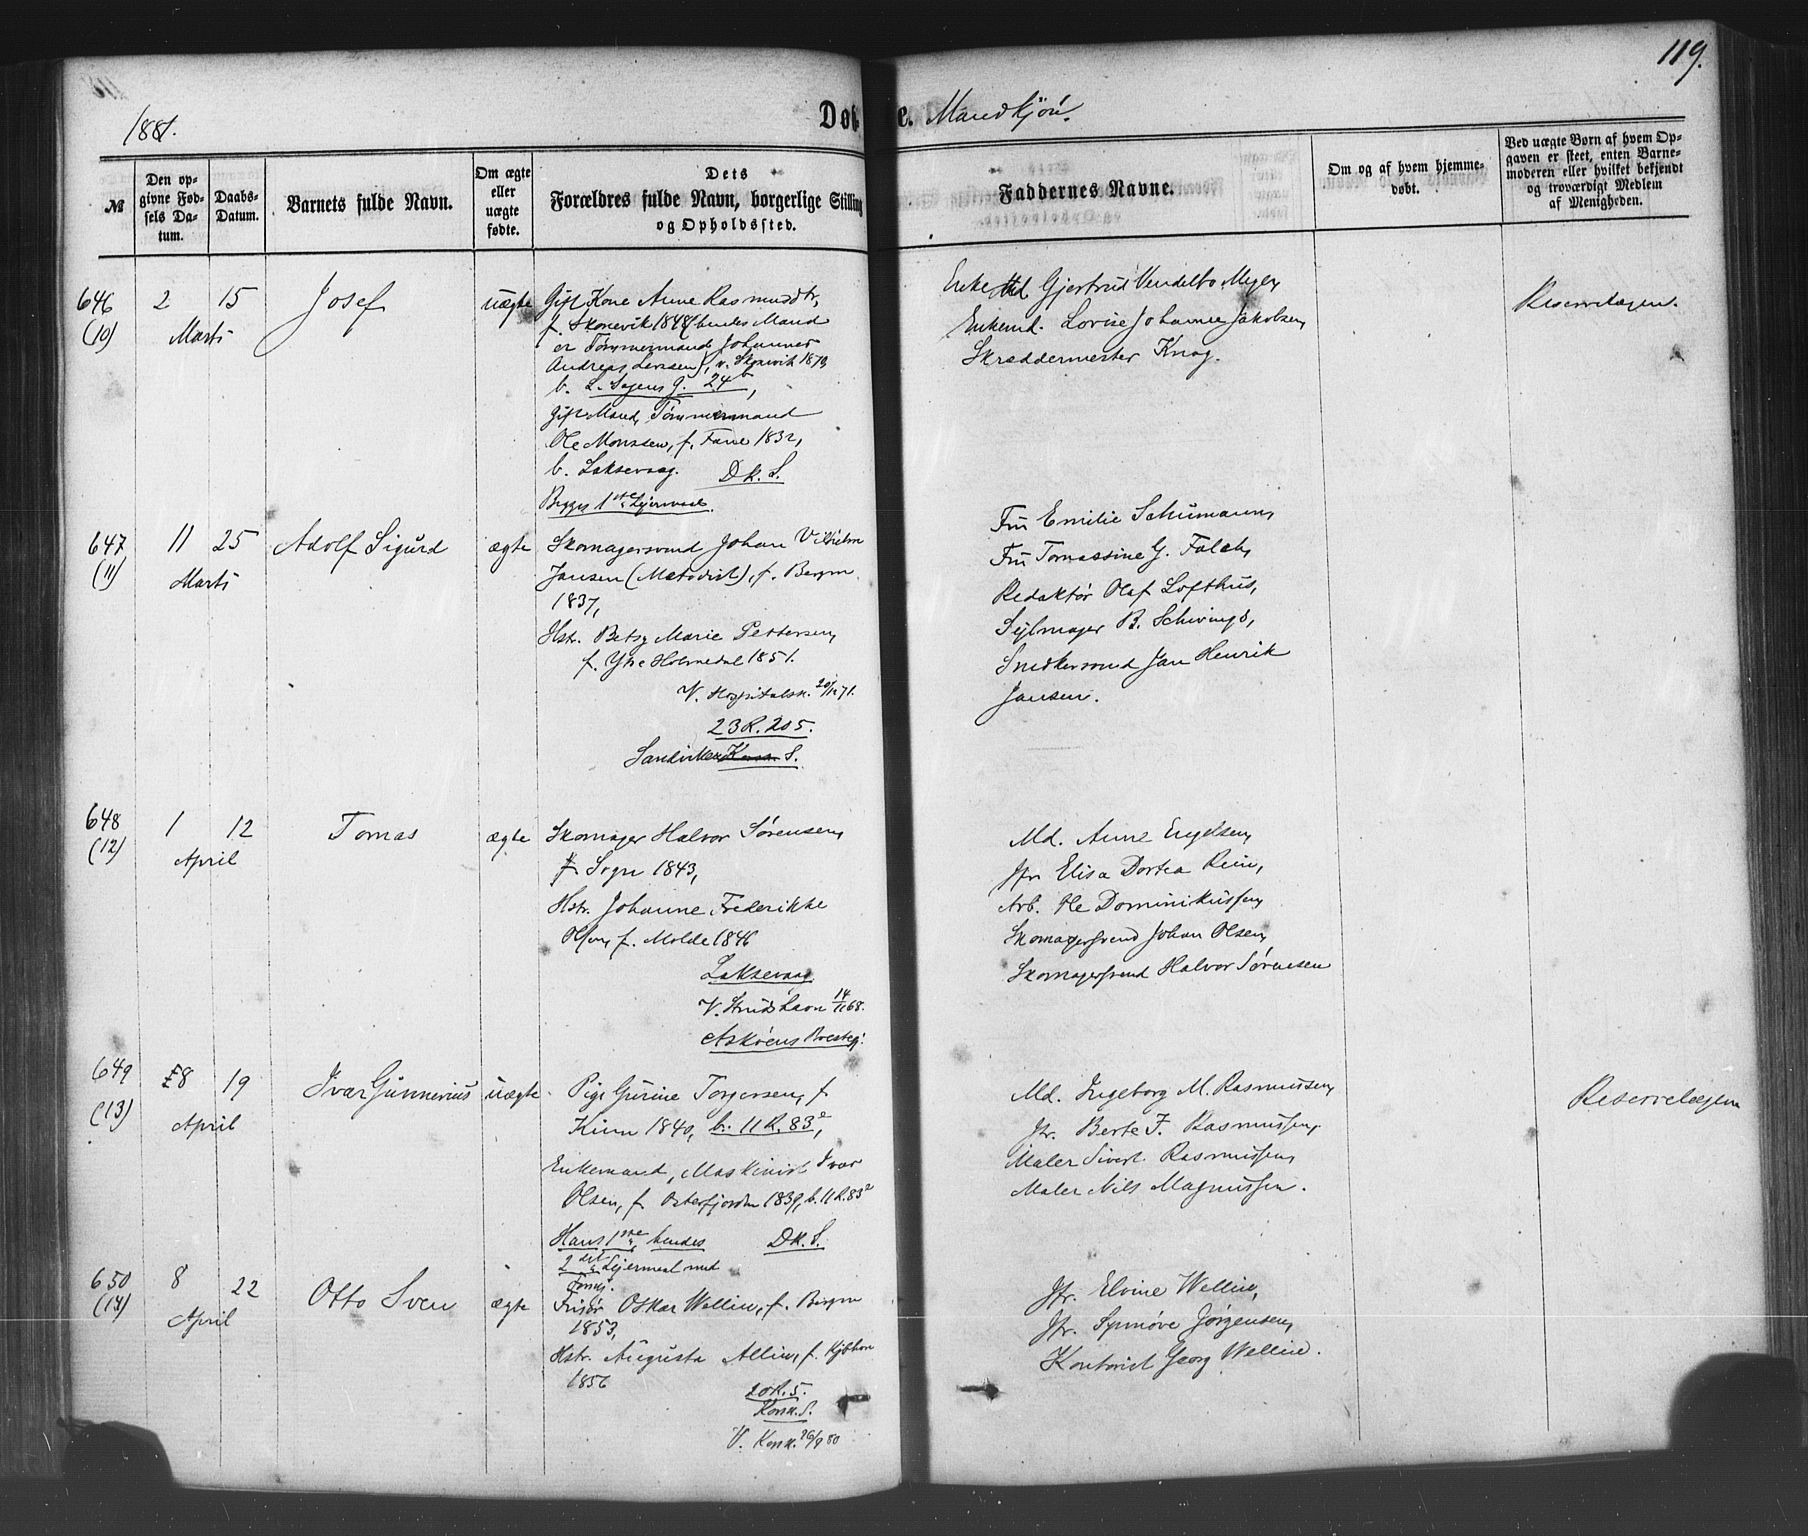 119.
1881.
Døb e. Mandkjøn.
№
Den opgivne Fødsels Datum.
Daabs-Datum.
Barnets fulde Navn.
Om ægte eller uægte fødte.
Dets Forældres fulde Navn, borgerlige Stilling og Opholdssted.
Faddernes Navne.
Om og af hvem hjemmedøbt.
Ved uægte Børn af hvem Opgaven er skeet, enten Barnemoderen eller hvilket bekjendt og troværdigt Medlem af Menigheden.
646 (10)
2 Marts
15
Josef
uægte
Gift Kone Anne Rasmusdtr,
f. Skonevik 1848 (hendes Mand
er Tømmermand Johannes
Andreas Larssen), v. Skonevik 1870,
b. L. Sagens G. 24 b,
Gift Mand, Tømmermand
Ole Monssen, f. Fane 1832,
b. Laksevaag. Dk. S.
Begges 1ste Lejermaal.
Enke Md Gjertrud Vendelbo Meyer,
Enkemd. Lovise Johanne Jakobsen,
Skræddermester Knag.
Reservelægen.
647 (11)
11 Marts
25
Adolf Sigurd
ægte
Skomagersvend Johan Vilhelm
Jansen (Metodist), f. Bergen
1837,
Hstr. Betsy Marie Pettersen,
f. Ytre Holmedal 1851.
V. Hospitalsk. 20/12 71.
23 R. 205.
Sandviken S.
Fru Emilie Schumann,
Fru Tomassine G. Falch,
Redaktør Olaf Lofthus,
Sejlmager B. Schwings,
Snedkersvend Jan Henrik
Jansen.
648 (12)
1 April
12
Tomas
ægte
Skomager Halvor Sørensen,
f. Sogn 1843,
Hstr. Johanne Frederikke
Olsen, f. Molde 1846
Laksevaag
V. Strudshavn 14/11 68.
Askøens Presteg.
Md. Anne Engelsen,
Jfr Elisa Dortea Rein,
Arb. Ole Dominikussen,
Skomagersvend Johan Olsen,
Skomagersvend Halvor Sørensen
649 (13)
8 April
19
Ivar Gunnerius
uægte
Pige Gurine Torgersen, f.
Kinn 1840, b. 11 R. 83²,
Enkemand, Maskinist Ivar
Olsen, f. Osterfjorden 1839, b. 11 R. 83²
Hans 1ste, hendes Dk. S.
2det Lejermaal med
Md. Ingeborg M. Rasmussen,
Jfr. Berte J. Rasmussen,
Maler Sivert Rasmussen,
Maler Nils Magnussen.
Reservelægen
650 (14)
8 April
22
Otto Sven
ægte
Frisør Oskar Wellin, f. Bergen
1853,
Hstr. Augusta Allin, f. Kjøbhvn
1856
20 R. 5.
Korsk. S.
V. Korsk. 26/9 80
Jfr. Elvine Welline,
Jfr. Synnøve Jørgensen,
Kontorist Georg Welline.